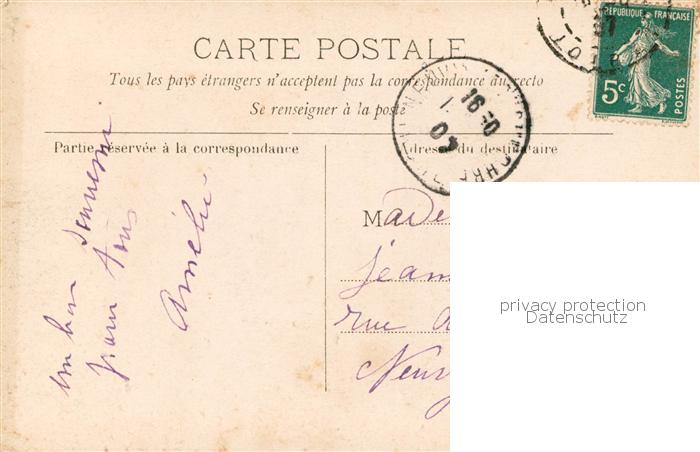 RÉPUBLIQUE FRANÇAISE
5c
POSTES
LOT
CARTE POSTALE
Tous les pays étrangers n'acceptent pas la correspondance au recto
Se renseigner à la poste
16 40
Partie réservée à la correspondance
Adresse du destinataire
un bon souvenir
pour tous
Amélie
Made
jeann
rue
privacy protection
Datenschutz